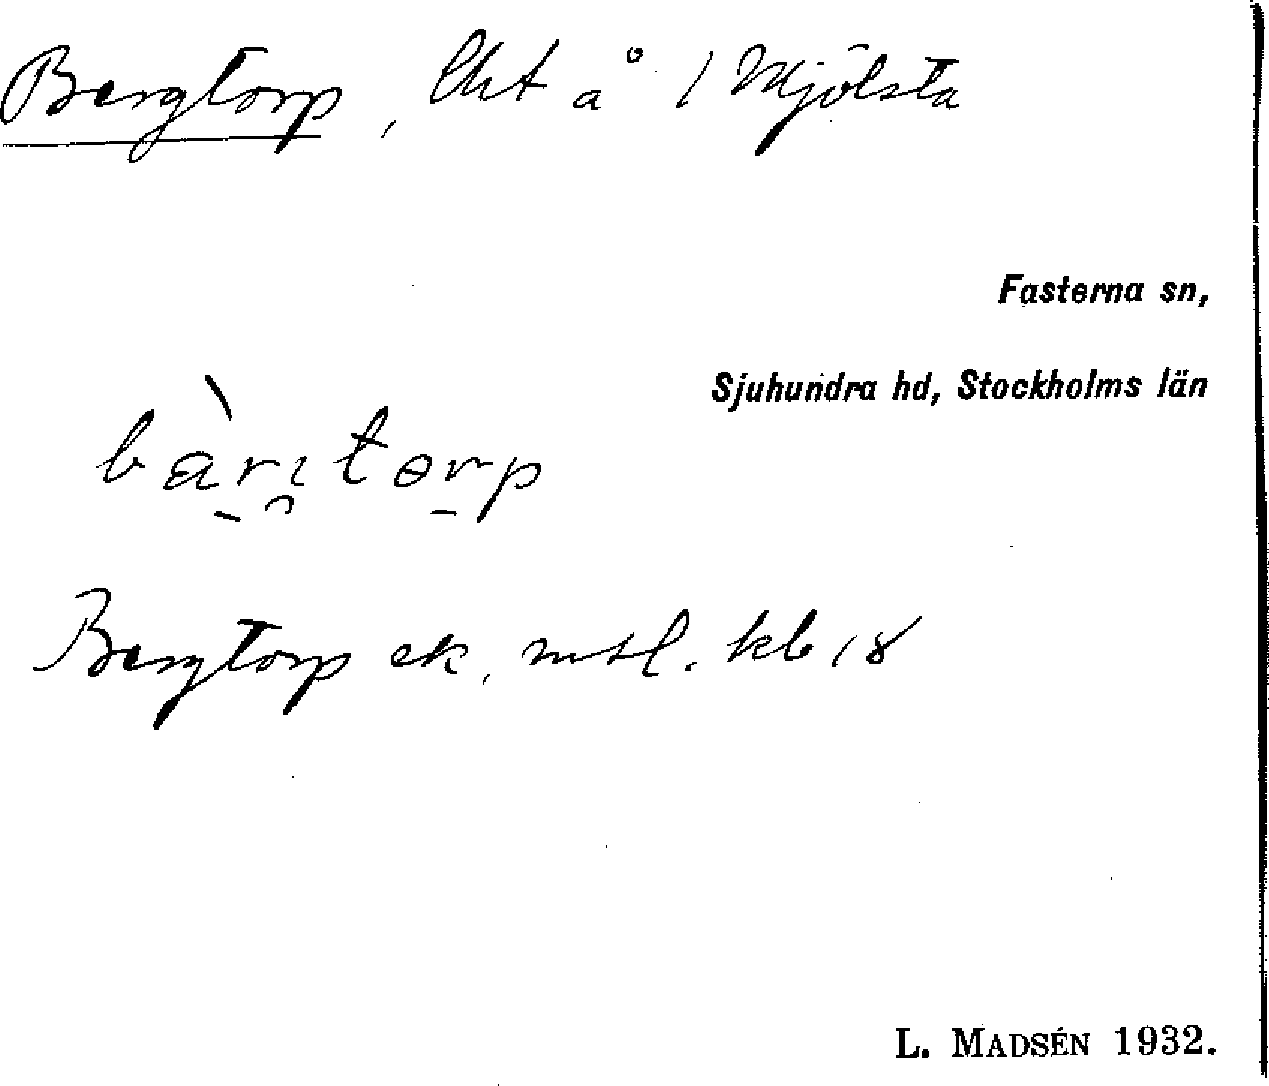 Bergtorp, lht å / Mjölsta
Fasterna sn,
Sjuhundra hd, Stockholms län
bàritorp
Bergtorp ek. mtl. kb 18
L. MADSÉN 1932.